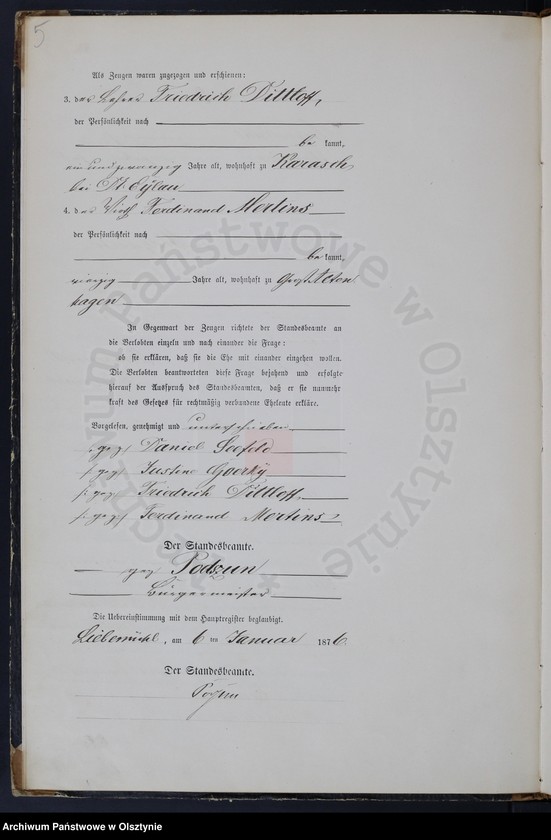 5
Als Zeugen waren zugezogen und erschienen:
3. der Friedrich Dittloff,
der Persönlichkeit nach
be kannt,
ein und zwanzig Jahre alt, wohnhaft zu Karasch
bei Dt. Eylau
4. der Wirth Ferdinand Mertins
der Persönlichkeit nach
be kannt,
vierzig Jahre alt, wohnhaft zu Groß Alten
hagen
In Gegenwart der Zeugen richtete der Standesbeamte an
die Verlobten einzeln und nach einander die Frage:
ob sie erklären, daß sie die Ehe mit einander eingehen wollen.
Die Verlobten beantworteten diese Frage bejahend und erfolgte
hierauf der Ausspruch des Standesbeamten, daß er sie nunmehr
kraft des Gesetzes für rechtmäßig verbundene Eheleute erkläre.
Vorgelesen, genehmigt und unterschrieben
gez Daniel Seefeld
gez Justine
gez Friedrich Dittloff
gez Ferdinand Mertins
Der Standesbeamte.
gez Podszun
Bürgermeister
Die Uebereinstimmung mit dem Hauptregister beglaubigt.
Liebemühl, am 6 ten Januar 1876
Der Standesbeamte.
Archiwum Państwowe w Olsztynie
Archiwum Państwowe w Olsztynie